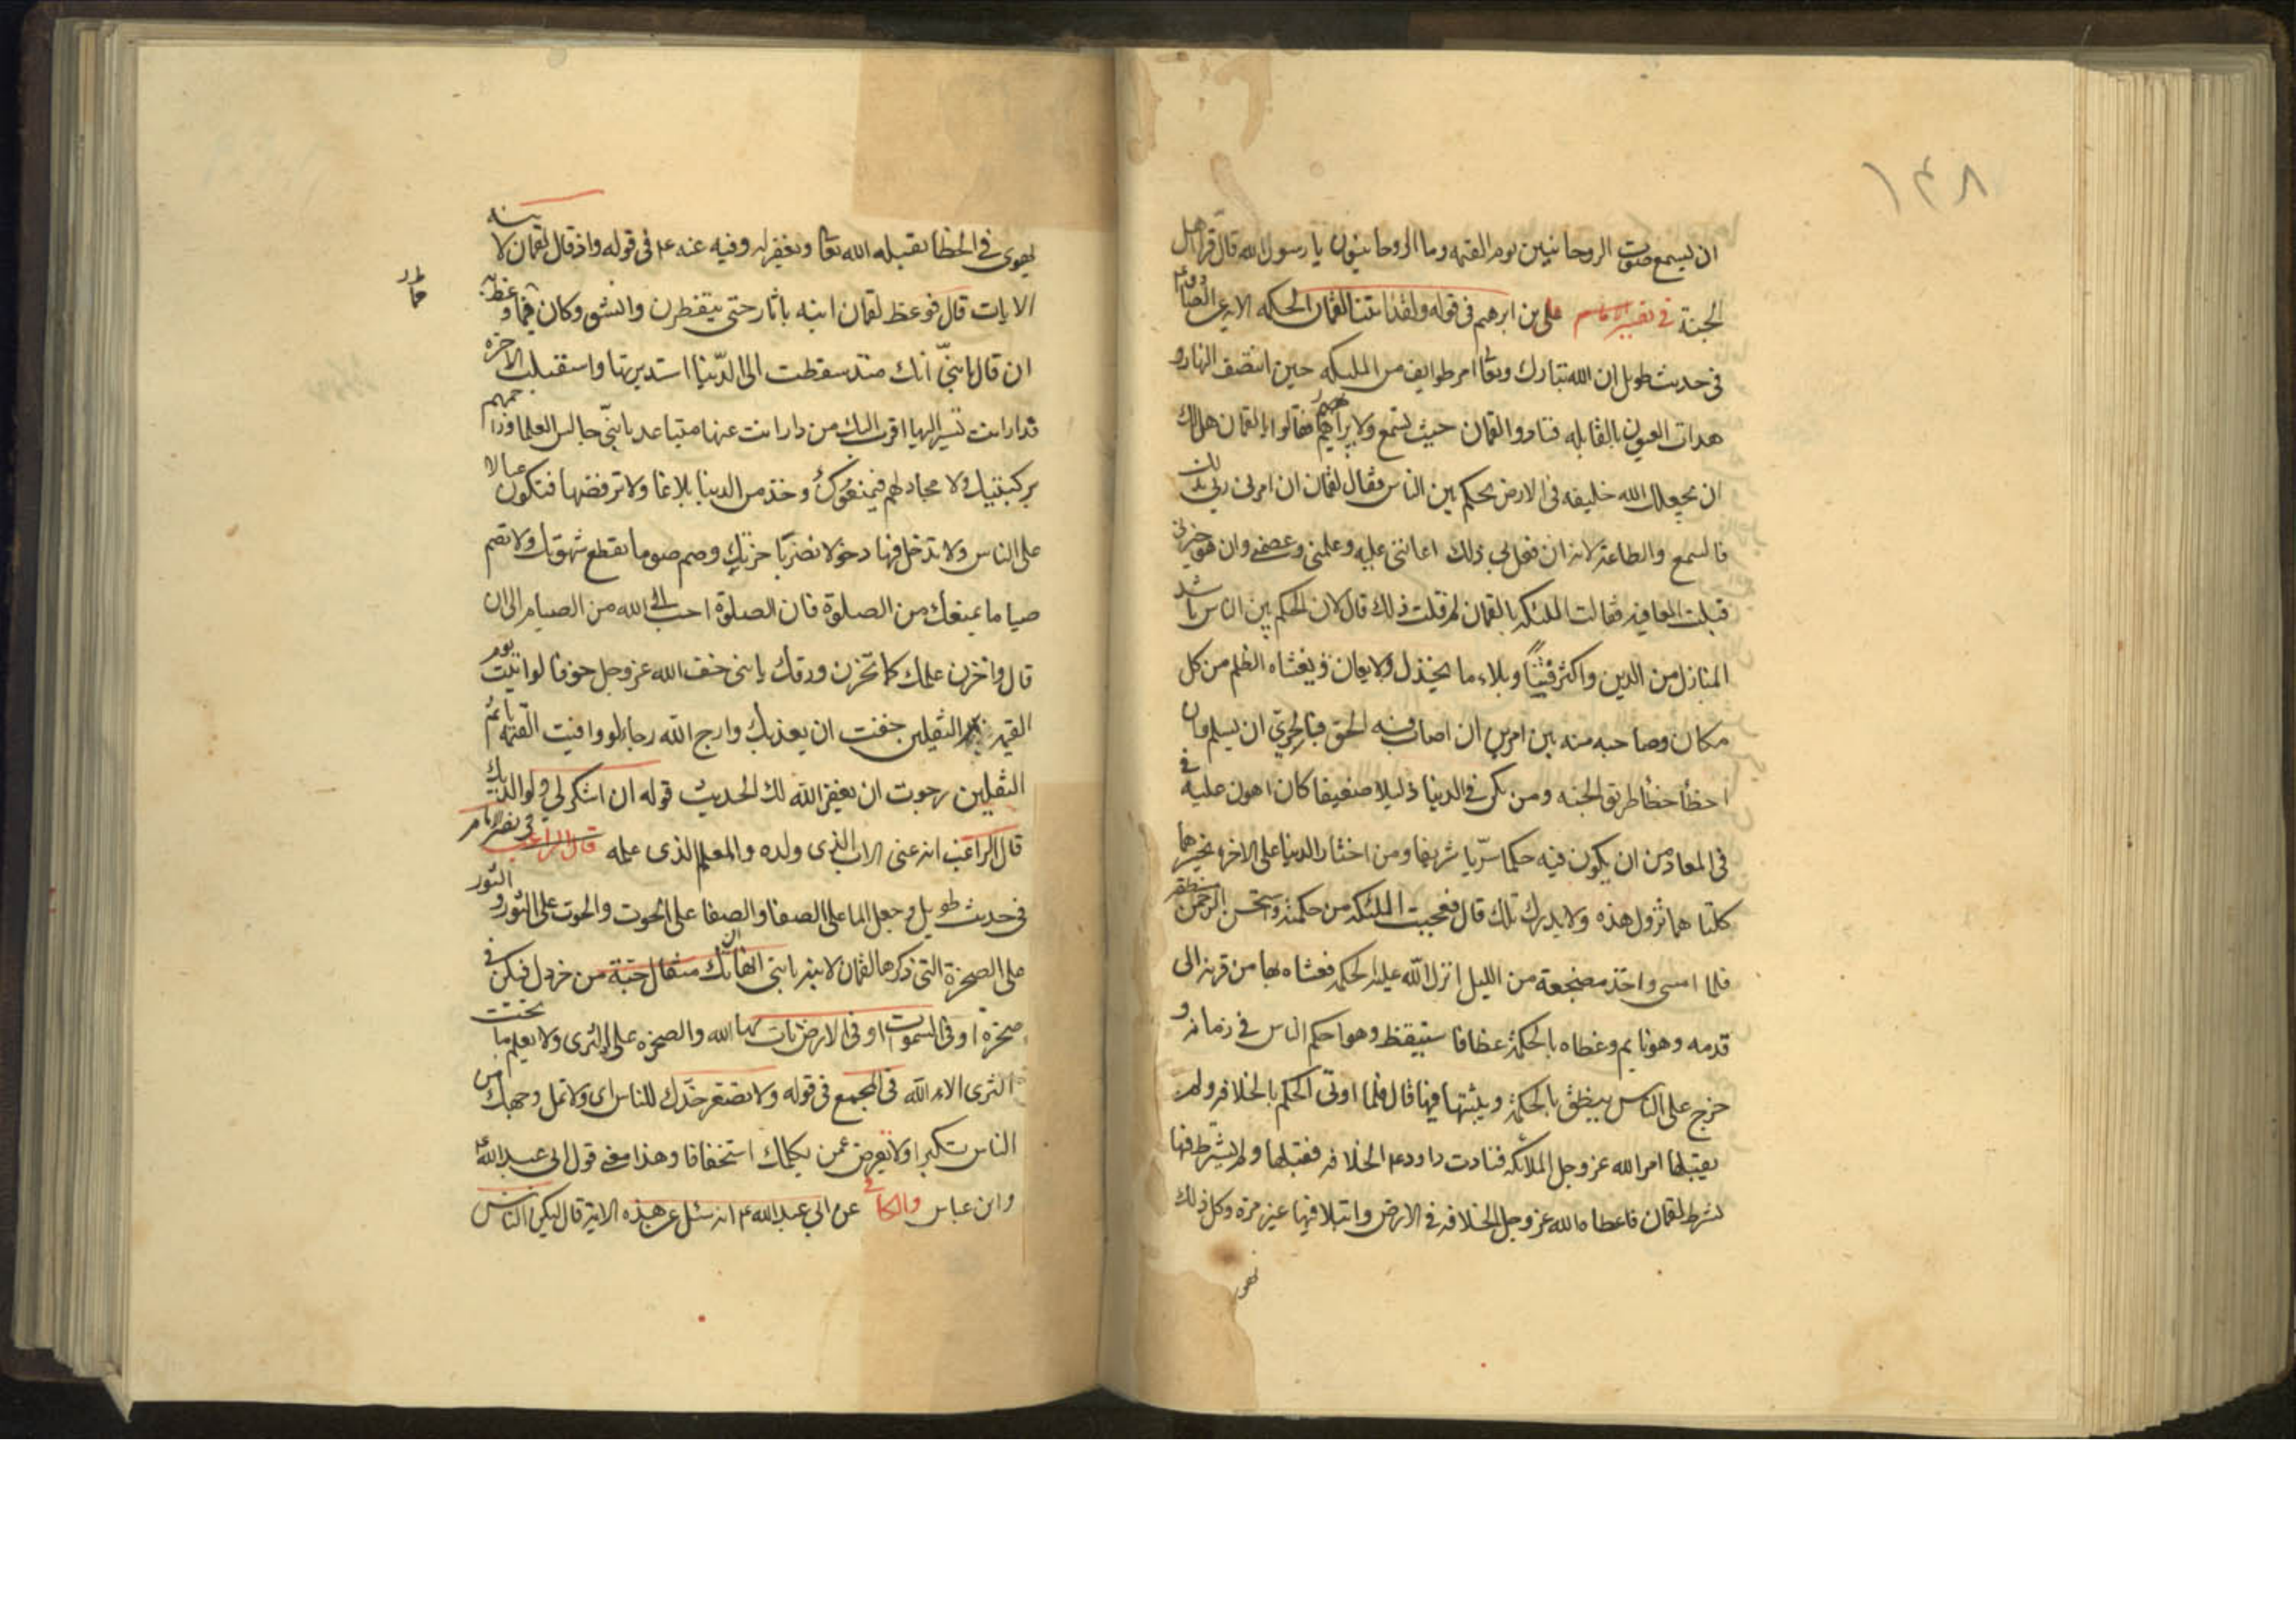 ١٤٨
ان يسمع صوت الروحانيين يوم القيمه وما الروحانيون يا رسول الله قال قراء اهل
الجنة في تفسير الامام علي بن ابرهيم في قوله ولقد اتينا لقمان الحكمه الاية عن الصادق ع
في حديث طويل ان الله تبارك وتعا امر طوايف من الملئكه حين انتصف النهار و
هدات العيون بالقايله فنادوا لقمان حيث يسمع ولا يراهم فقالوا يا لقمان هل لك
ان يجعلك الله خليفه في الارض يحكم بين الناس فقال لقمان ان امرني ربي بذلك
فالسمع والطاعة لانه ان فعل بي ذلك اعانني عليه وعلمني وعصمني وان هو خيرني
قبلت العافيه فقالت الملئكه يا لقمان لم قلت ذلك قال لان الحكم بين الناس باشد
المنازل من الدين واكثر فتنا وبلاء ما يخذل ولا يعان و يغشاه الظلم من كل
مكان وصاحبه منه بين امرين ان اصاب فيه الحق فبالحري ان يسلم وان
اخطأ اخطأ طريق الجنه ومن يكن في الدنيا ذليلا ضعيفا كان اهون عليه في
المعاد من ان يكون فيه حكما سريا شريفا ومن اختار الدنيا على الاخره يخسرهما
كلتاهما تزول هذه ولا يدرك تلك قال فعجبت الملئكه من حكمته واستحسن الرحمن منطقه
فلما امسى واخذ مضجعة من الليل انزل الله عليه الحكمه فغشاه بها من قرنه الى
قدمه وهو نايم وغطاه بالحكمة غطا فاستيقظ وهو احكم الناس في زمانه و
خرج على الناس ينطق بالحكمة ويثبتها فيها قال فلما اوتى الحكم بالخلافه ولم
يقبلها امر الله عز وجل الملائكه فنادت داود ع الخلافه فقبلها ولم يشترط فيها
بشرط لقمان فاعطاه الله عز وجل الخلافه في الارض وابتلا فيها غير مرة وكل ذلك
يهوى
يهوى في الخطا يقبله الله تعا ويغفر له وفيه عنه ع في قوله واذ قال لقمان لابنه
الايات قال فوعظ لقمان ابنه باثار حتى يتفطرن وانشق وكان فيما وعظه به
ان قال يا بني انك منذ سقطت الى الدنيا استدبرتها واستقبلت الاخره
فدار انت تسير اليها اقرب اليك من دار انت عنها متباعد يا بني جالس العلما وزاحمهم
بركبتيك ولا تجادلهم فيمنعوك وخذ من الدنيا بلاغا ولا ترفضها فتكون عيالا
على الناس ولا تدخل فيها دخولا يضر باخرتك وصم صوما يقطع شهوتك ولا تصم
صياما يمنعك من الصلوة فان الصلوة احب الى الله من الصيام الى ان
قال واخزن علمك كما تخزن ورقك يا بنى خف الله عز وجل خوفا لو اتيت يوم
القيمة ببر الثقلين خفت ان يعذبك وارج الله رجاء لو وافيت القيمه باثم
الثقلين رجوت ان يغفر الله لك الحديث قوله ان اشكر لي ولوالديك
قال الراغب انه عنى الاب الذي ولده والمعلم الذي علمه قال الراغب في تفسير الامام
في حديث طويل وجعل الما على الصفا والصفا على الحوت والحوت على الثور والثور
على الصخرة التي ذكرها لقمان لابنه يا بنى انها ان تك مثقال حبة من خردل فتكن في
صخرة او في السموات او في الارض يأت بها الله والصخره على الثرى ولا يعلم ما تحت
الثرى الا الله في المجمع في قوله ولا تصعر خدك للناس اى ولا تمل وجهك من
الناس تكبرا ولا تعرض عمن يكلمك استخفافا وهذا معنى قول ابي عبد الله ع
وابن عباس والكافي عن ابي عبد الله ع انه سئل عن هذه الاية قال ليكن الناس